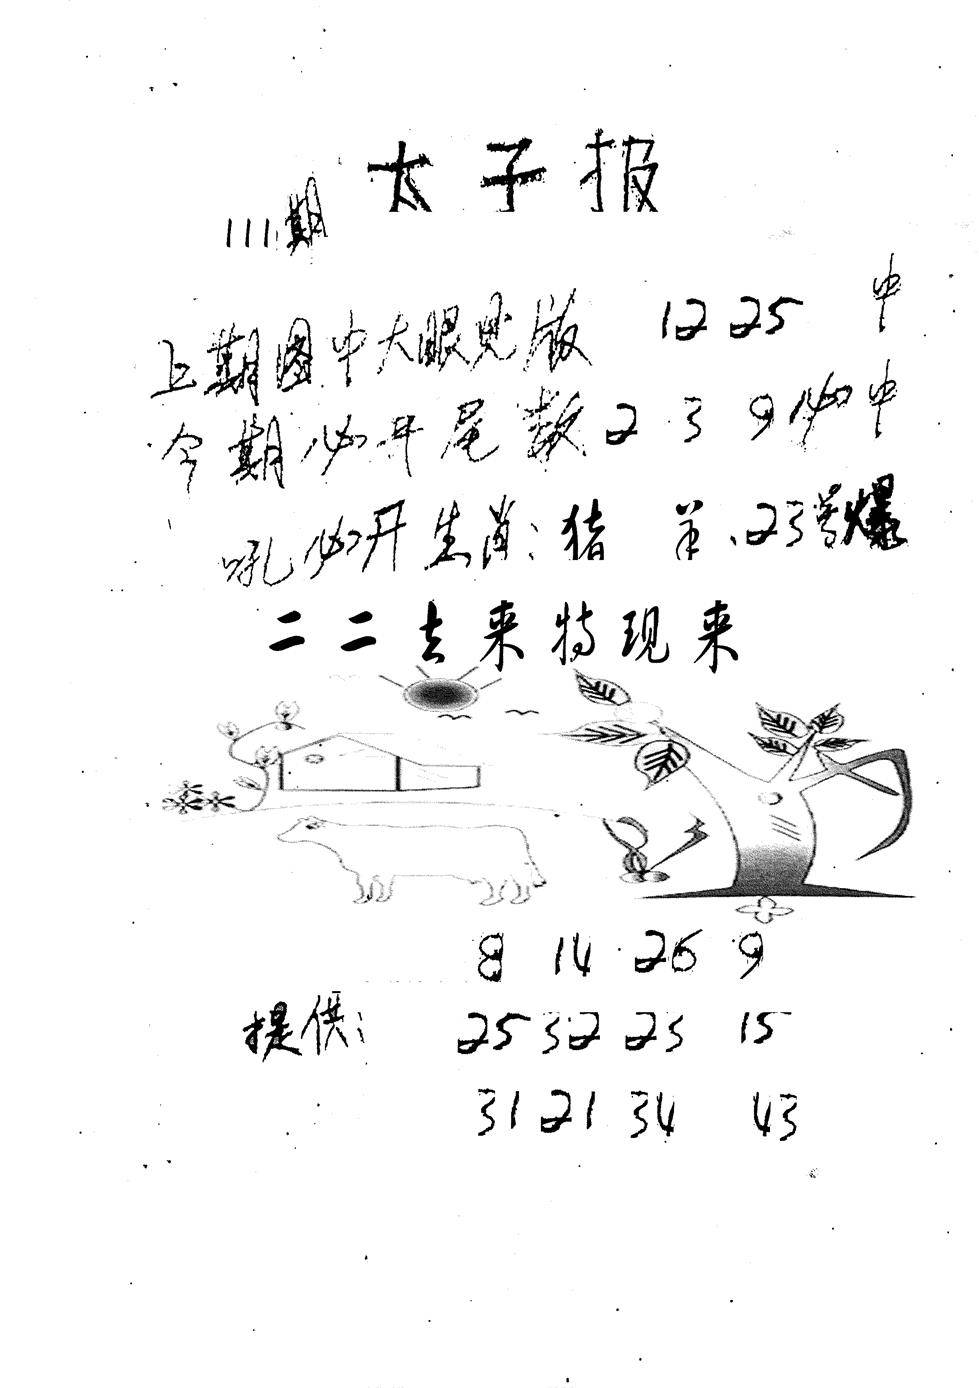 太子报
111期
上期图中大眼见版 12 25 中
今期必开尾数2 3 9必中
吼必开生肖:猪 羊、23号爆
二二去来特现来
8 14 26 9
提供: 25 32 23 15
31 21 34 43